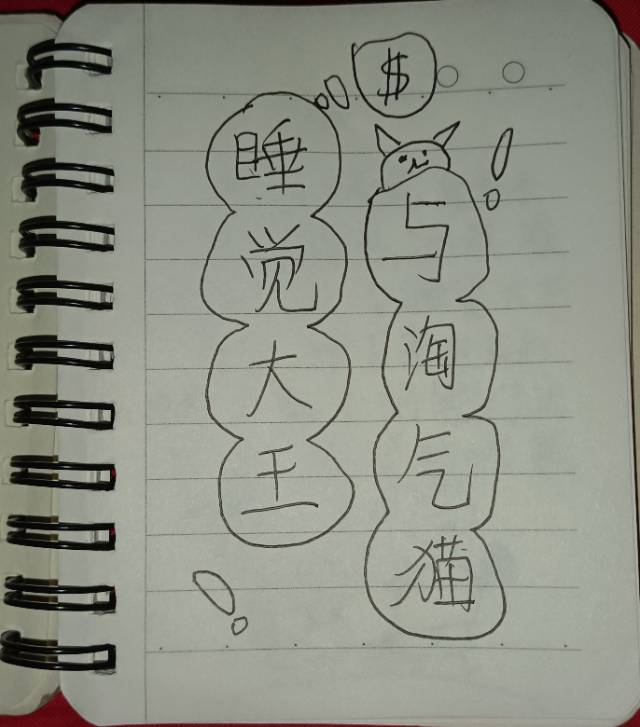 $
睡觉大王
与淘气猫
!
!